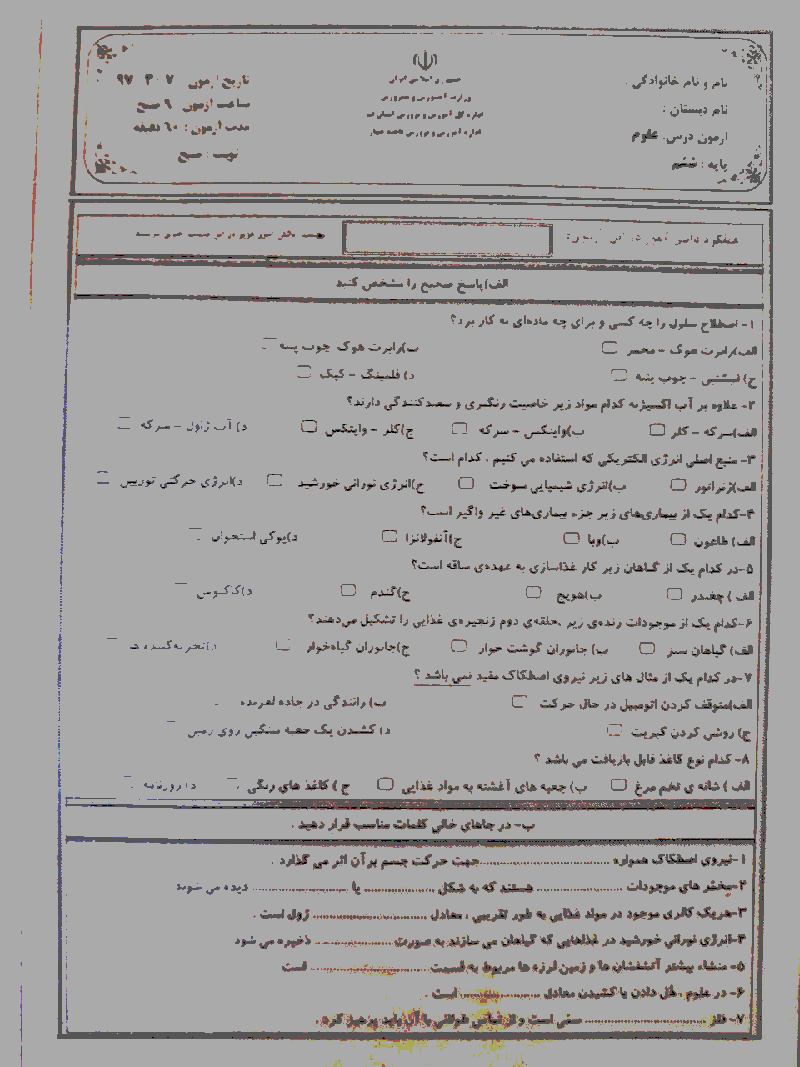 نام و نام خانوادگی :
نام دبستان :
آزمون درس: علوم
پایه : ششم
جمهوری اسلامی ایران
وزارت آموزش و پرورش
اداره کل آموزش و پرورش استان
اداره آموزش و پرورش ناحیه
تاریخ آزمون ۷ - ۳ - ۹۷
ساعت آزمون ۹ صبح
مدت آزمون : ۶۰ دقیقه
نوبت : صبح
الف)پاسخ صحیح را مشخص کنید
۱- اصطلاح سلول را چه کسی و برای چه ماده‌ای به کار برد؟
الف)رابرت هوک - مخمر ب)رابرت هوک چوب پنبه
ج) - چوب پنبه د) فلمینگ - کپک
۲- علاوه بر آب اکسیژنه کدام مواد زیر خاصیت رنگبری و سفیدکنندگی دارند؟
الف)سرکه - کلر ب)وایتکس - سرکه ج)کلر - وایتکس د) آب ژاول - سرکه
۳- منبع اصلی انرژی الکتریکی که استفاده می کنیم ، کدام است؟
الف)ژنراتور ب)انرژی شیمیایی سوخت ج)انرژی نورانی خورشید د)انرژی حرکتی توربین
۴-کدام یک از بیماری‌های زیر جزء بیماری‌های غیر واگیر است؟
الف) طاعون ب)وبا ج)آنفولانزا د)پوکی استخوان
۵-در کدام یک از گیاهان زیر کار غذاسازی به عهده‌ی ساقه است؟
الف ) چغندر ب)هویج ج)گندم د)کاکتوس
۶-کدام یک از موجودات زنده‌ی زیر ،حلقه‌ی دوم زنجیره‌ی غذایی را تشکیل می‌دهند؟
الف) گیاهان سبز ب) جانوران گوشت خوار ج)جانوران گیاه‌خوار د)تجزیه‌کننده ها
۷-در کدام یک از مثال های زیر نیروی اصطکاک مفید نمی باشد ؟
الف)متوقف کردن اتومبیل در حال حرکت ب) رانندگی در جاده لغزنده
ج) روشن کردن کبریت د) کشیدن یک جعبه سنگین روی زمین
۸- کدام نوع کاغذ قابل بازیافت می باشد ؟
الف ) شانه ی تخم مرغ ب) جعبه های آغشته به مواد غذایی ج ) کاغذ های رنگی د) روزنامه
ب- در جاهای خالی کلمات مناسب قرار دهید .
۱-نیروی اصطکاک همواره ..................جهت حرکت جسم بر آن اثر می گذارد .
۲-مخمر های موجودات .................. هستند که به شکل .................. یا .................. دیده می شوند
۳-هریک کالری موجود در مواد غذایی به طور تقریبی ، معادل .................. ژول است .
۴-انرژی نورانی خورشید در غذاهایی که گیاهان می سازند به صورت.................. ذخیره می شود
۵- منشاء بیشتر آتشفشان ها و زمین لرزه ها مربوط به قسمت .................. است
۶- در علوم ، هُل دادن یا کشیدن معادل .............. است .
۷- فلز .................. سمی است و از تماس طولانی با آن باید پرهیز کرد.